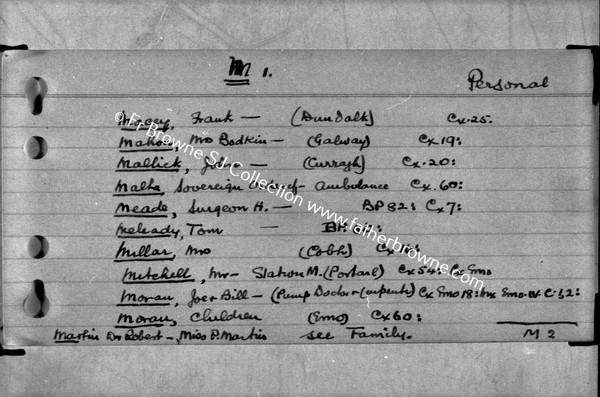 M 1.
Personal
Magee, Frank — (Dundalk) Cx. 25:
Mahon, Mrs Bodkin — (Galway) Cx 19:
Mallick, John — (Curragh) Cx. 20:
Malta, Sovereign Order of - ambulance Cx. 60:
Meade, Surgeon H. — BP 82: Cx 7:
Melready, Tom —
Millar, Mrs (Cobh) Cx
Mitchell, Mr - Station M. (Portarl) Cx 54: Cx Emo
Moran, Joe & Bill — (Pump Doctor & Carpenter) Cx Emo 18: Emo-IV-C-32:
Moran, Children (Emo) Cx 60:
Martin Dr Robert —, Miss P. Martin see Family.
M 2
© Fr Browne SJ Collection www.fatherbrowne.com